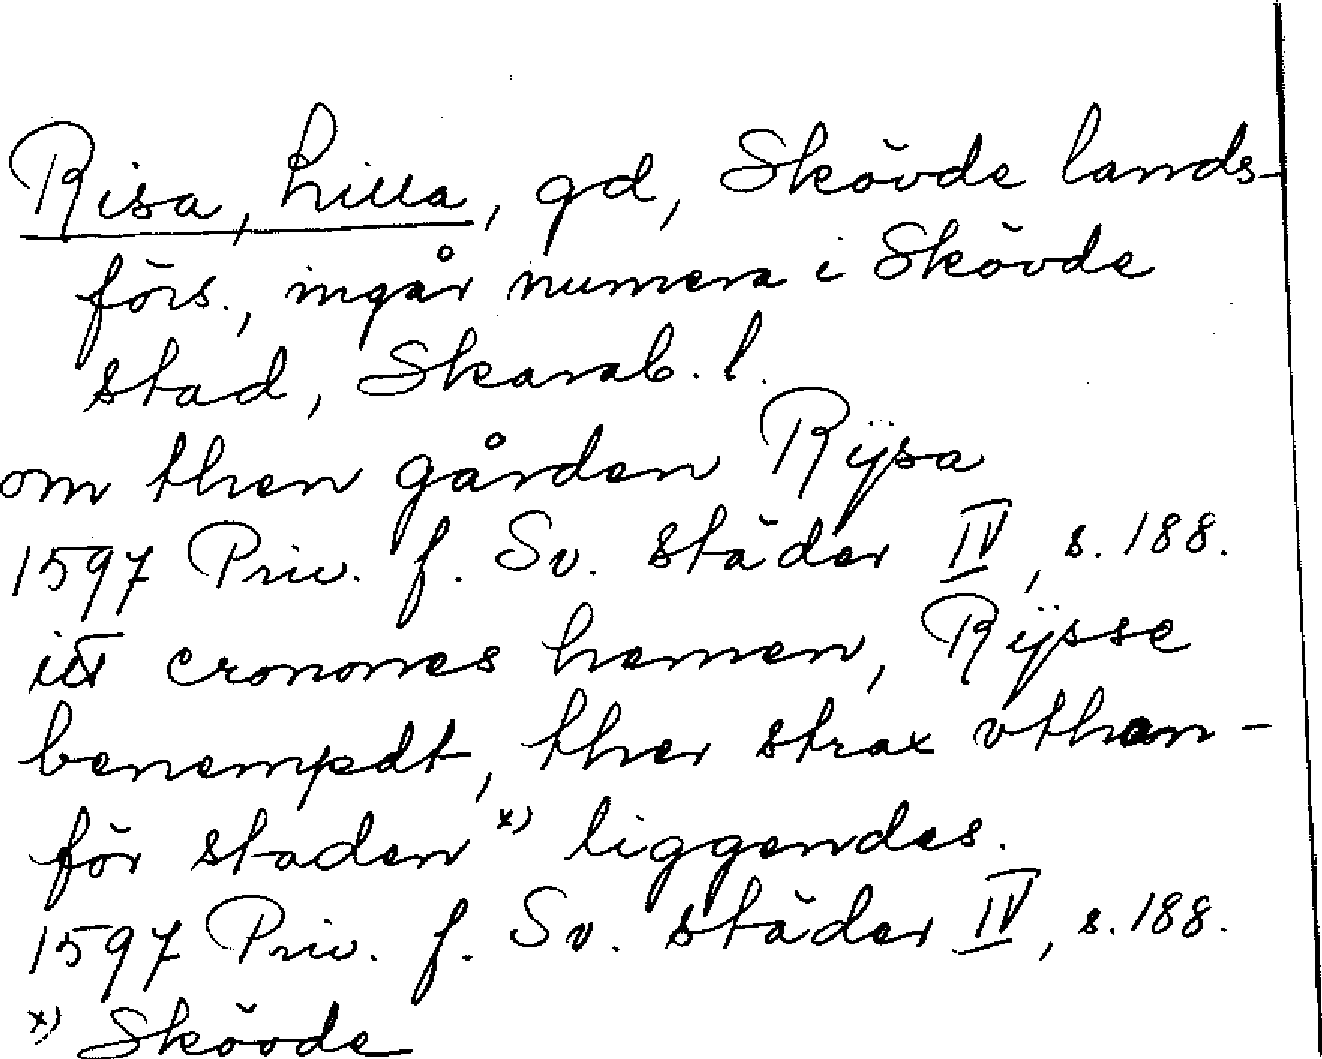 Risa, Lilla, gd, Skövde lands-
förs., ingår numera i Skövde
stad, Skarab. l.
om then gården Rÿsa
1597 Priv. f. Sv. städer IV, s. 188.
itt cronones hemen, Rÿsse
benempdt, ther strax vthan-
för staden x) liggendes.
1597 Priv. f. Sv. städer IV, s. 188.
x) Skövde